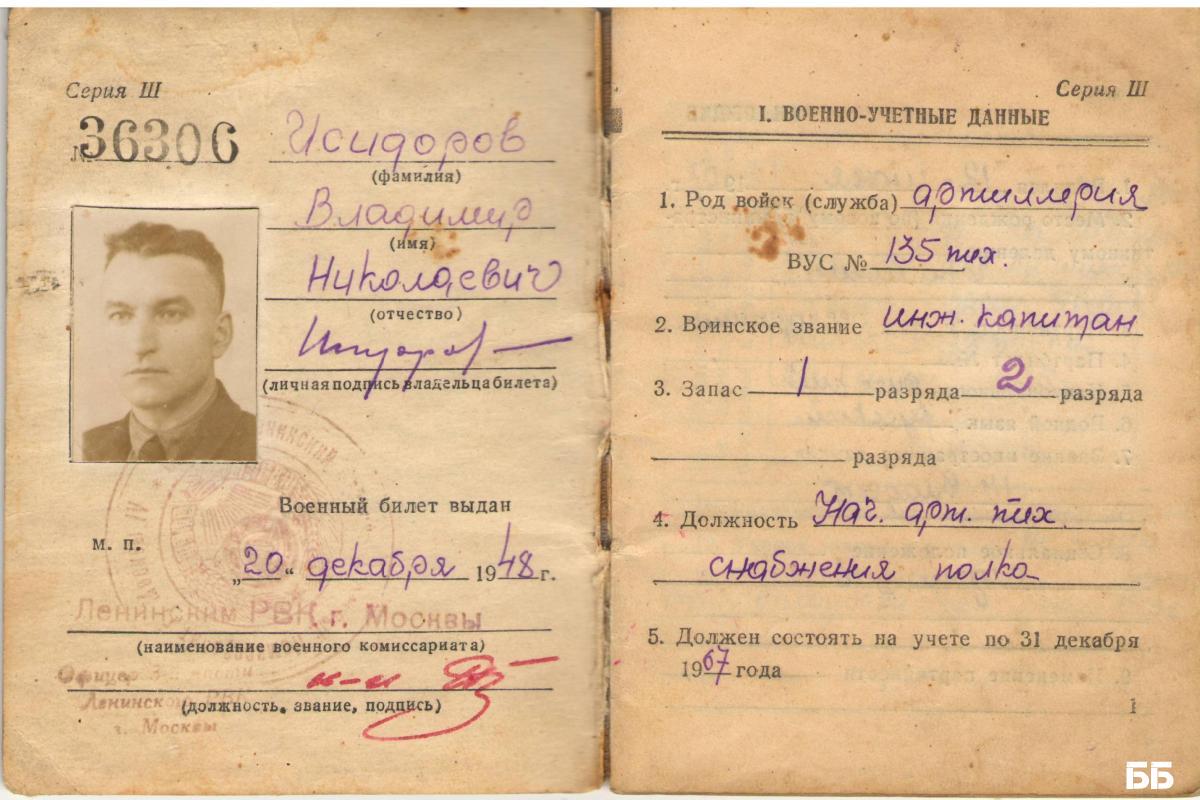 Серия Ш
№ 36306
Исидоров
(фамилия)
Владимир
(имя)
Николаевич
(отчество)
(личная подпись владельца билета)
Военный билет выдан
м. п.
„20“ декабря 1948 г.
Ленинским РВК г. Москвы
(наименование военного комиссариата)
Офицер
Ленинского РВК
г. Москвы
(должность, звание, подпись)
Серия Ш
I. ВОЕННО-УЧЕТНЫЕ ДАННЫЕ
1. Род войск (служба) артиллерия
ВУС № 135 тех.
2. Воинское звание инж. капитан
3. Запас 1 разряда 2 разряда
разряда
4. Должность Нач. арт. тех.
снабжения полка
5. Должен состоять на учете по 31 декабря
1967 года
1
ББ